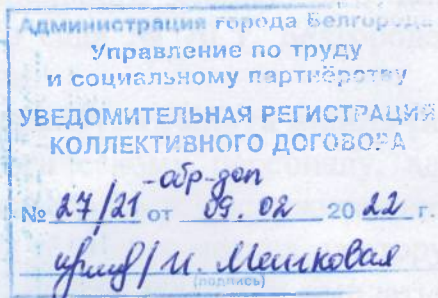 Администрация города Белгорода
Управление по труду
и социальному партнёрству
УВЕДОМИТЕЛЬНАЯ РЕГИСТРАЦИЯ
КОЛЛЕКТИВНОГО ДОГОВОРА
-обр-доп
№ 27/21 от 09. 02 20 22 г.
/ И. Машковая
(подпись)